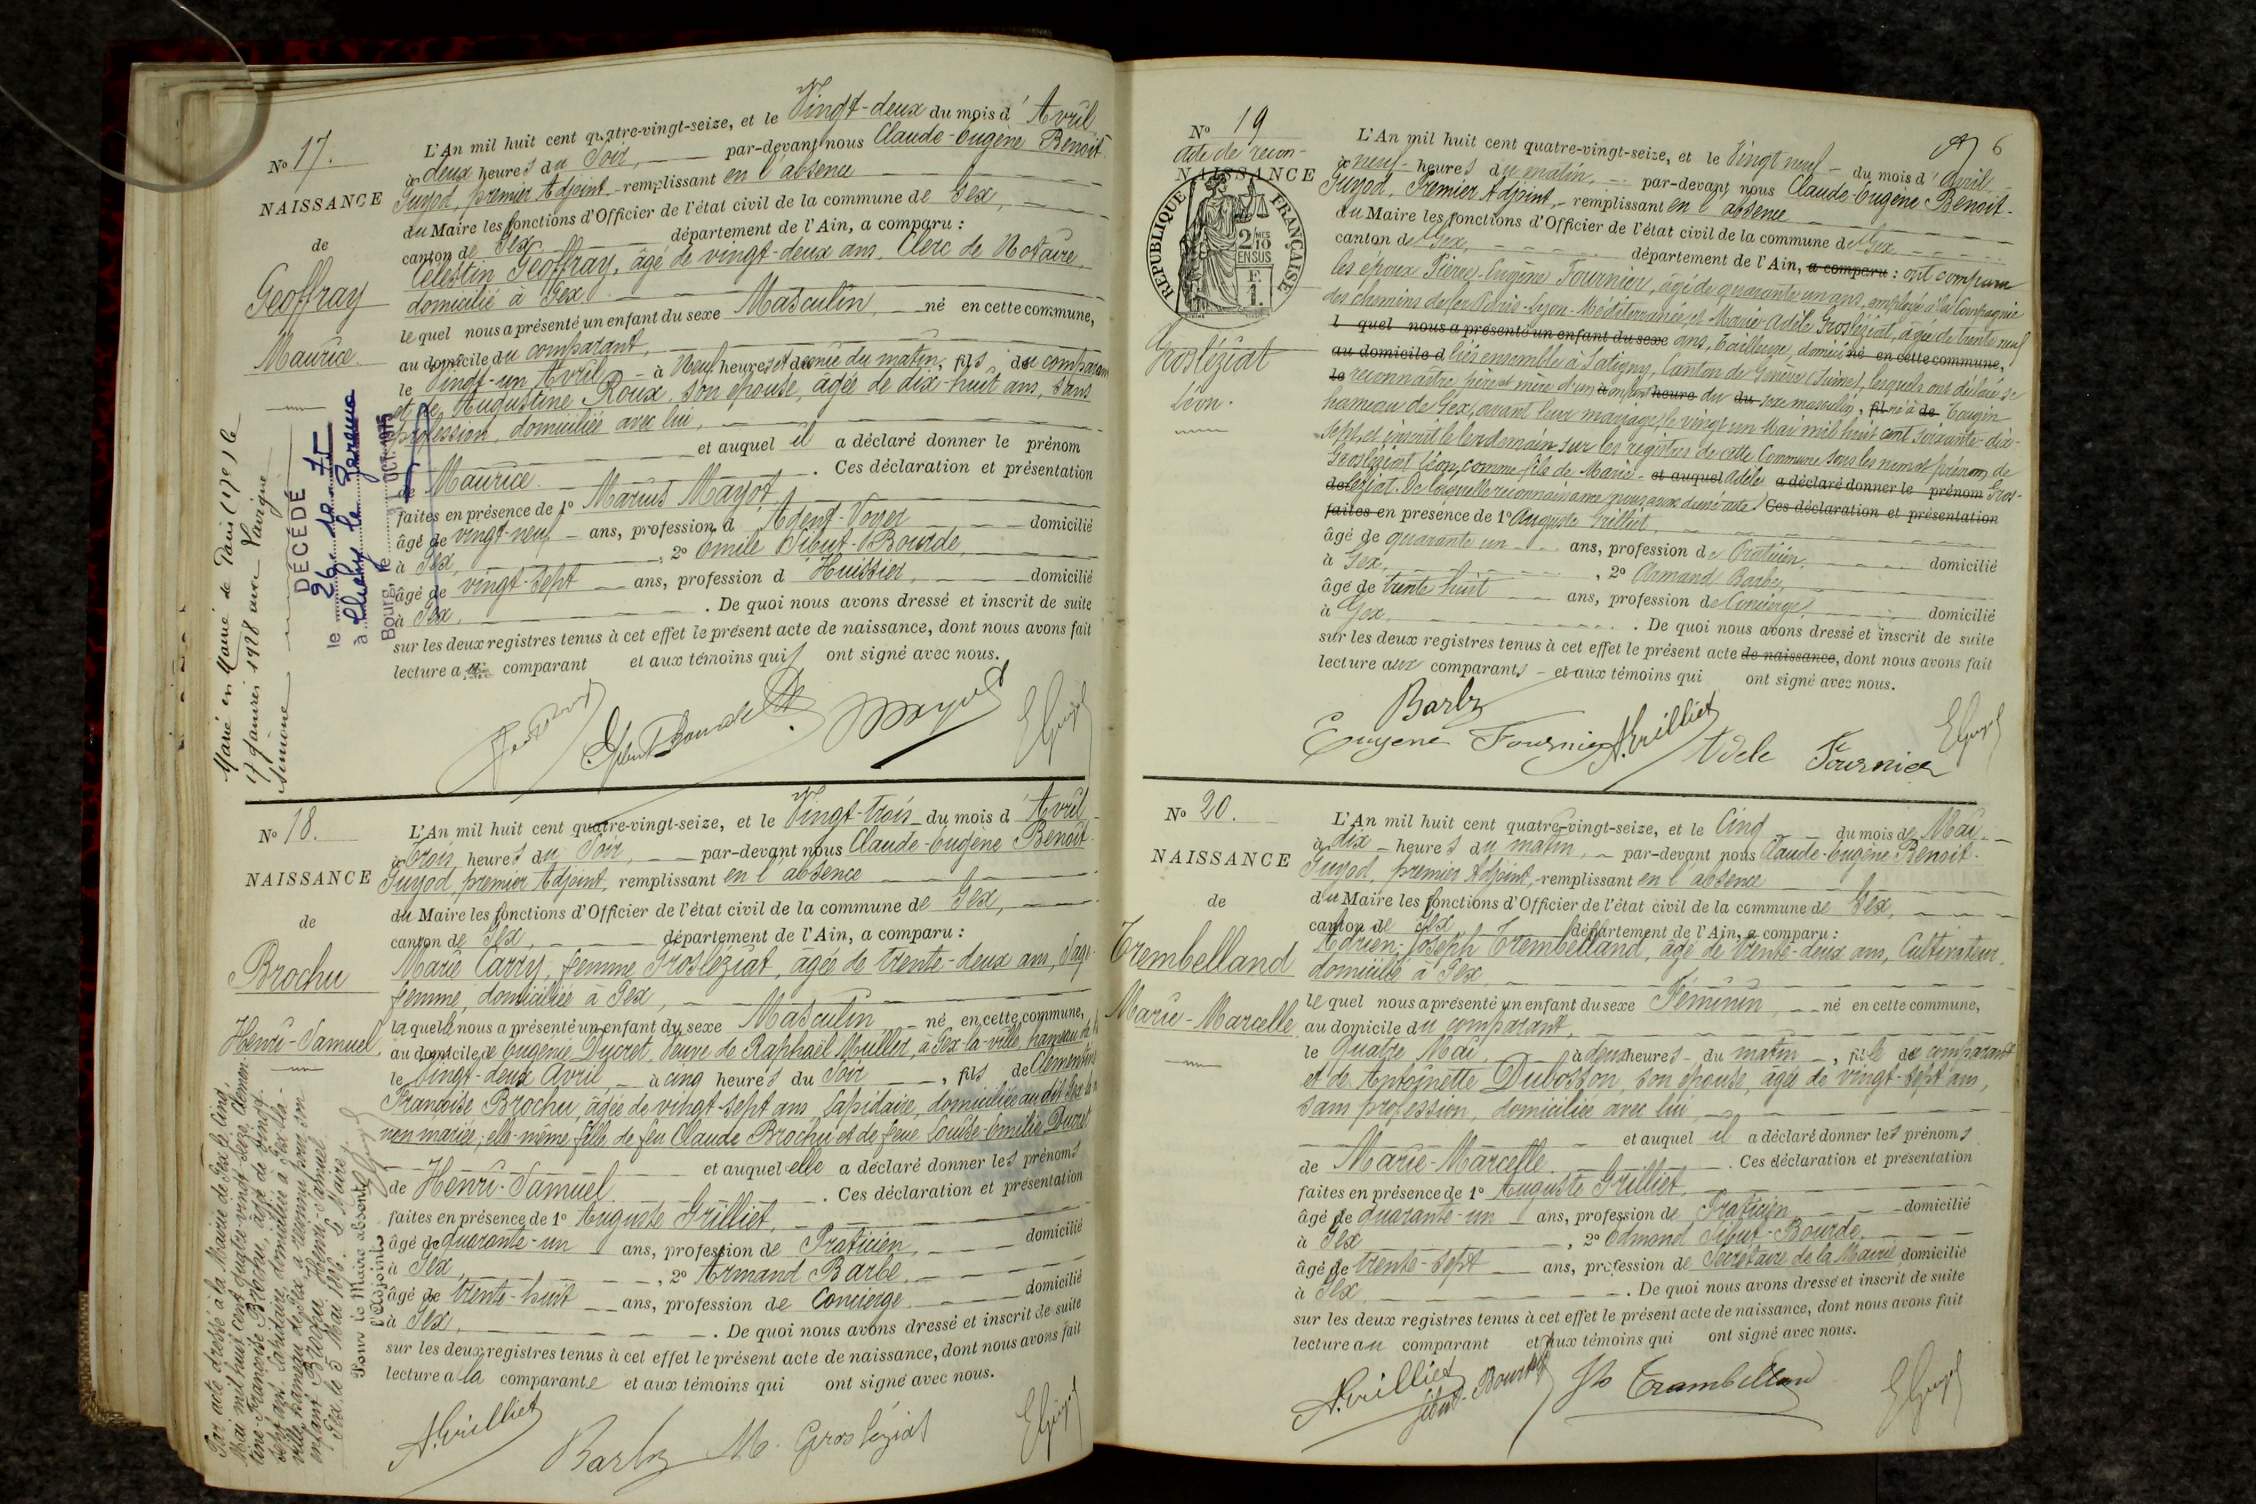 No 17.
NAISSANCE
de
Geoffray
Maurice
Marié en Mairie de Paris (17e) le
17 Janvier 1928 avec
Simone
DÉCÉDÉ
le 26.10.75
à Clichy la Garenne
Bourg, le OCT. 1975
L'An mil huit cent quatre-vingt-seize, et le Vingt-deux du mois d'Avril
à deux heures du Soir, par-devant nous Claude-Eugène Benoit
Guyod, premier Adjoint remplissant en l'absence
du Maire les fonctions d'Officier de l'état civil de la commune de Gex,
canton de Gex département de l'Ain, a comparu :
Célestin Geoffray, âgé de vingt-deux ans, Clerc de Notaire,
domicilié à Gex
lequel nous a présenté un enfant du sexe Masculin, né en cette commune,
au domicile du comparant,
le Vingt-un Avril à Neuf heures et demie du matin, fils du comparant
et de Augustine Roux, son épouse, âgée de dix-huit ans, sans
profession, domiciliée avec lui,
et auquel il a déclaré donner le prénom
de Maurice. Ces déclaration et présentation
faites en présence de 1o Marius Mayot,
âgé de vingt-neuf ans, profession d'Agent-Voyer domicilié
à Gex, 2o Emile Sibut-Bourde,
âgé de vingt-sept ans, profession d'Huissier, domicilié
à Gex. De quoi nous avons dressé et inscrit de suite
sur les deux registres tenus à cet effet le présent acte de naissance, dont nous avons fait
lecture au comparant et aux témoins qui ont signé avec nous.
No 18.
NAISSANCE
de
Brochu
Henri-Samuel
Par acte dressé à la Mairie de Gex le cinq
Mai mil huit cent quatre-vingt-seize, Clémen-
tine-Françoise Brochu, âgée de vingt-
sept ans, lapidaire, domiciliée à Gex-la-
ville, hameau de Gex, a reconnu pour son
enfant Brochu Henri-Samuel.
Gex, le 5 Mai 1896. Le Maire,
Pour le Maire absent
l'Adjoint,
EGuyod
L'An mil huit cent quatre-vingt-seize, et le Vingt-trois du mois d'Avril
à Trois heures du Soir, par-devant nous Claude-Eugène Benoit
Guyod, premier Adjoint, remplissant en l'absence
du Maire les fonctions d'Officier de l'état civil de la commune de Gex,
canton de Gex, département de l'Ain, a comparu :
Marie Carry, femme Grosléziat, âgée de trente-deux ans, Sage-
femme, domiciliée à Gex,
laquelle nous a présenté un enfant du sexe Masculin né en cette commune,
au domicile de Eugénie Ducret, Veuve de Raphaël Muller, à Gex-la-ville, hameau de
le Vingt-deux Avril, à cinq heures du Soir, fils de Clémentine
Françoise Brochu, âgée de vingt-sept ans, lapidaire, domiciliée au dit Gex-la-
non mariée, elle-même fille de feu Claude Brochu et de feue Louise-Emilie Ducret
et auquel elle a déclaré donner les prénoms
de Henri-Samuel. Ces déclaration et présentation
faites en présence de 1o Auguste Grilliet,
âgé de quarante-un ans, profession de Praticien, domicilié
à Gex, 2o Armand Barbe,
âgé de trente-huit ans, profession de Concierge domicilié
à Gex. De quoi nous avons dressé et inscrit de suite
sur les deux registres tenus à cet effet le présent acte de naissance, dont nous avons fait
lecture à la comparante et aux témoins qui ont signé avec nous.
A.Grilliet Barbe M. Grosléziat EGuyod
6
No 19
acte de recon-
NAISSANCE
RÉPUBLIQUE FRANÇAISE
2/10 EN SUS
F.
1.
Grosléziat
Léon.
L'An mil huit cent quatre-vingt-seize, et le Vingt neuf du mois d'avril
à neuf heures du matin, par-devant nous Claude-Eugène Benoit-
Guyod, Premier Adjoint, remplissant en l'absence
du Maire les fonctions d'Officier de l'état civil de la commune de Gex,
canton de Gex, département de l'Ain, a comparu : ont comparu
les époux Pierre-Eugène Fournier, âgé de quarante un ans, employé à la Compagnie
des chemins de fer Paris-Lyon-Méditerranée, et Marie Adèle Grosléziat, âgée de trente neuf
l quel nous a présenté un enfant du sexe ans, tailleuse, domici né en cette commune,
au domicile d liés ensemble à Satigny, Canton de Genève (Suisse), lesquels ont déclaré se
le reconnaître père et mère d'un à enfant heure du du sexe masculin, fil né à de Tougin
hameau de Gex, avant leur mariage, le vingt un Mai mil huit cent soixante-dix-
sept, et inscrit le lendemain sur les registres de cette Commune sous les nom et prénom de
Grosléziat Léon, comme fils de Marie- et auquel Adèle a déclaré donner le prénom Gros-
de léziat. De laquelle reconnaissance nous avons dressé acte Ces déclaration et présentation
faites en présence de 1o Auguste Grilliet,
âgé de quarante un ans, profession de Praticien, domicilié
à Gex, 2o Armand Barbe,
âgé de trente huit ans, profession de Concierge, domicilié
à Gex. De quoi nous avons dressé et inscrit de suite
sur les deux registres tenus à cet effet le présent acte de naissance, dont nous avons fait
lecture aux comparants et aux témoins qui ont signé avec nous.
Barbe
Eugene Fournier A.Grilliet Adele Fournier EGuyod
No 20.
NAISSANCE
de
Trembelland
Marie-Marcelle
L'An mil huit cent quatre-vingt-seize, et le Cinq du mois de Mai
à dix heures du matin, par-devant nous Claude-Eugène Benoit-
Guyod, premier Adjoint, remplissant en l'absence
du Maire les fonctions d'Officier de l'état civil de la commune de Gex,
canton de Gex département de l'Ain, a comparu :
Adrien-Joseph Trembelland, âgé de trente-deux ans, Cultivateur,
domicilié à Gex
lequel nous a présenté un enfant du sexe Féminin né en cette commune,
au domicile du comparant,
le Quatre Mai, à deux heures du matin, fille du comparant
et de Antoinette Dubosson, son épouse, âgée de vingt-sept ans,
sans profession, domiciliée avec lui,
et auquel il a déclaré donner les prénoms
de Marie-Marcelle. Ces déclaration et présentation
faites en présence de 1o Auguste Grilliet,
âgé de quarante-un ans, profession de Praticien domicilié
à Gex, 2o Edmond Sibut-Bourde,
âgé de trente-sept ans, profession de Secrétaire de la Mairie, domicilié
à Gex. De quoi nous avons dressé et inscrit de suite
sur les deux registres tenus à cet effet le présent acte de naissance, dont nous avons fait
lecture au comparant et aux témoins qui ont signé avec nous.
A.Grilliet Sibut-Bourde Trambelland EGuyod